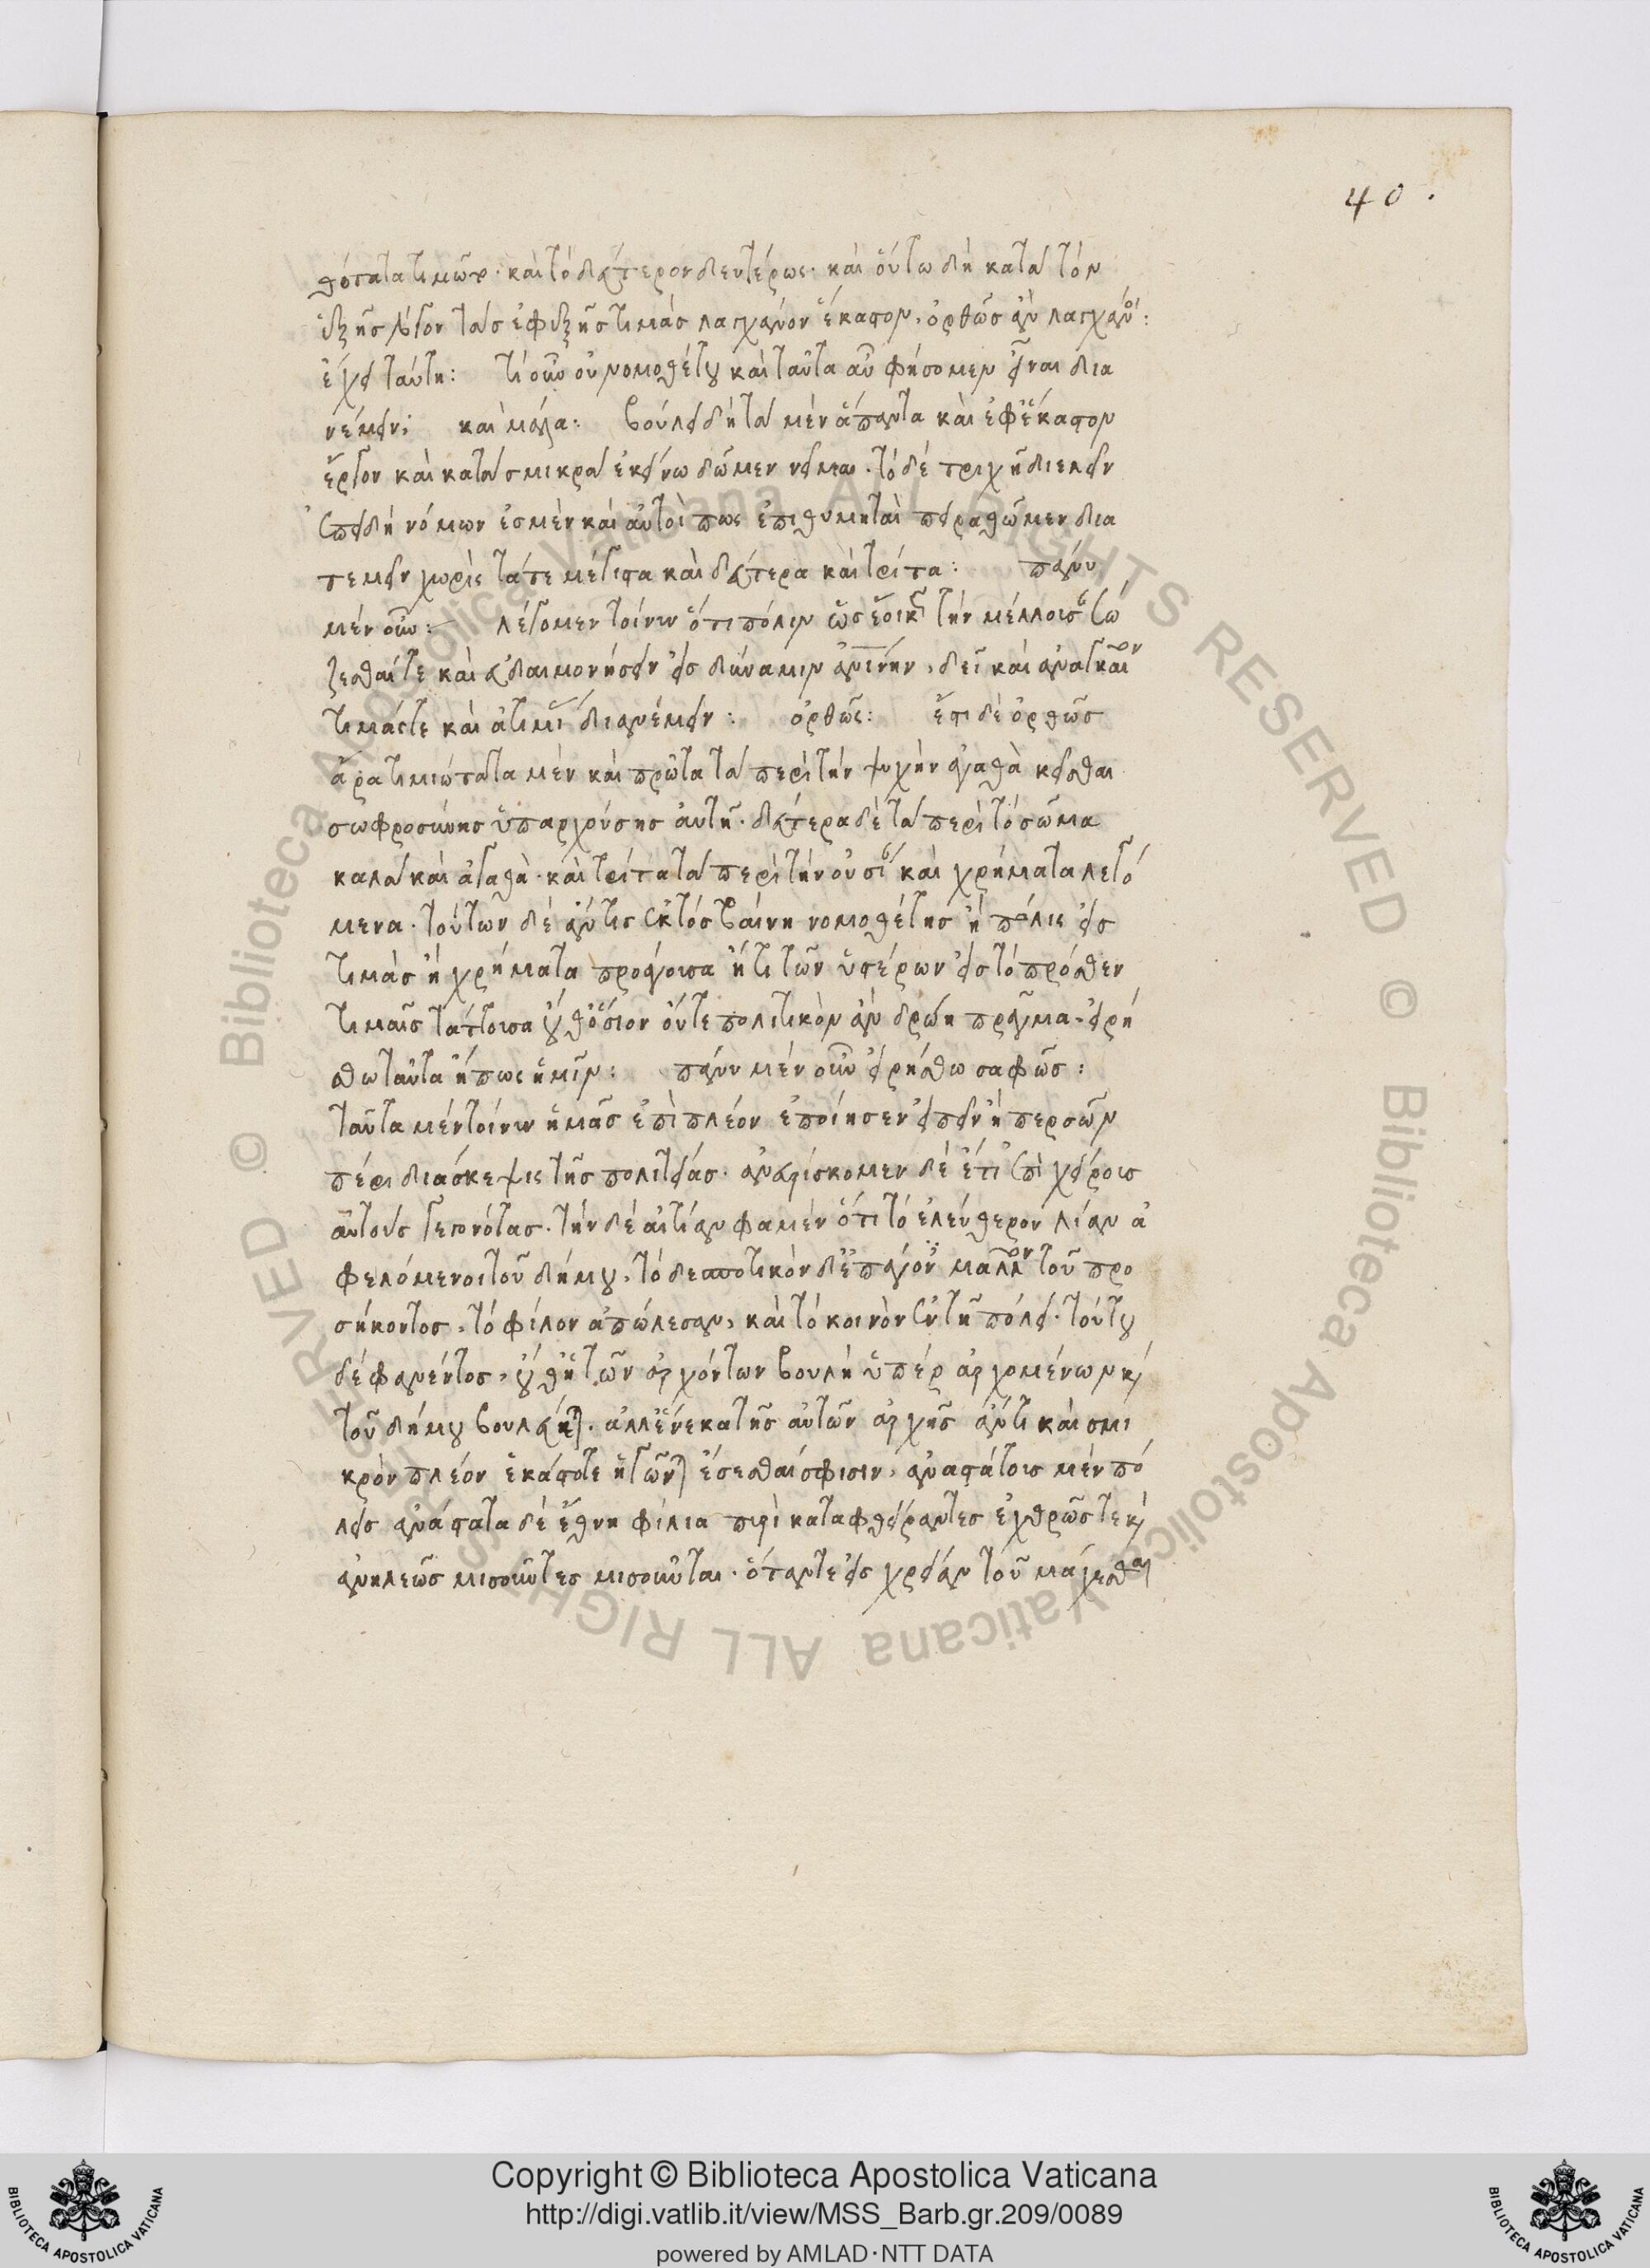 40.
θότατα τιμῶν· καὶ τὸ δεύτερον δευτέρως· καὶ οὕτω δὴ κατὰ τὸν
ἑξῆς λόγον τὰς ἐφεξῆς τιμὰς λαγχάνον ἕκαστον, ὀρθῶς ἂν λαγχάνοι:
ἔχει ταύτῃ: τί οὖν οὐ νομοθέτου καὶ ταῦτα αὖ φήσομεν εἶναι δια
νέμειν; καὶ μάλα: βούλει δὴ τὰ μὲν ἅπαντα καὶ ἐφ' ἕκαστον
ἔργον καὶ κατὰ σμικρὰ ἐκείνω δῶμεν νεῖμαι. τὸ δὲ τριχῇ διελεῖν
ἐπειδὴ νόμων ἐσμὲν καὶ αὐτοί πως ἐπιθυμηταὶ πειραθῶμεν δια
τεμεῖν χωρὶς τά τε μέγιστα καὶ δεύτερα καὶ τρίτα: πάνυ
μὲν οὖν: λέγομεν τοίνυν ὅτι πόλιν ὡς ἔοικε τὴν μέλλουσαν σώ
ζεσθαί τε καὶ εὐδαιμονήσειν εἰς δύναμιν ἀνθρωπίνην, δεῖ καὶ ἀναγκαῖον
τιμάς τε καὶ ἀτιμίας διανέμειν: ὀρθῶς: ἔστι δὲ ὀρθῶς
ἄρα τιμιώτατα μὲν καὶ πρῶτα τὰ περὶ τὴν ψυχὴν ἀγαθὰ κεῖσθαι
σωφροσύνης ὑπαρχούσης αὐτῇ· δεύτερα δὲ τὰ περὶ τὸ σῶμα
καλὰ καὶ ἀγαθὰ· καὶ τρίτα τὰ περὶ τὴν οὐσίαν καὶ χρήματα λεγό
μενα· τούτων δὲ ἄν τις ἐκτὸς βαίνῃ νομοθέτης ἢ πόλις εἰς
τιμὰς ἢ χρήματα προάγουσα ἤ τι τῶν ὑστέρων εἰς τὸ πρόσθεν
τιμαῖς τάττουσα οὔθ' ὅσιον οὔτε πολιτικὸν ἂν δρῴη πρᾶγμα· εἰρή
σθω ταῦτα ἢ πως ἡμῖν: πάνυ μὲν οὖν εἰρήσθω σαφῶς:
ταῦτα μὲν τοίνυν ἡμᾶς ἐπὶ πλέον ἐποίησεν εἰπεῖν ἡ περσῶν
πέρι διάσκεψις τῆς πολιτείας· ἀνευρίσκομεν δὲ ἔτι ἐπὶ χείρους
αὐτοὺς γεγονότας· τὴν δὲ αἰτίαν φαμὲν ὅτι τὸ ἐλεύθερον λίαν ἀ
φελόμενοι τοῦ δήμου, τὸ δεσποτικὸν δ' ἐπάγον μᾶλλον τοῦ προ
σήκοντος, τὸ φίλον ἀπώλεσαν, καὶ τὸ κοινὸν ἐν τῇ πόλει· τούτου
δὲ φανέντος, οὔθ' ἡ τῶν ἀρχόντων βουλὴ ὑπὲρ ἀρχομένων καὶ
τοῦ δήμου βουλεύεται, ἀλλ' ἕνεκα τῆς αὐτῶν ἀρχῆς ἄν τι καὶ σμι
κρὸν πλέον ἑκάστοτε ἡγῶνται ἔσεσθαί σφισιν, ἀναστάτους μὲν πό
λεις ἀνάστατα δὲ ἔθνη φίλια πυρὶ καταφθείραντες ἐχθρῶς τε καὶ
ἀνηλεῶς μισοῦντες μισοῦνται· ὅταν τε εἰς χρείαν τοῦ μάχεσθαι
Copyright © Biblioteca Apostolica Vaticana
http://digi.vatlib.it/view/MSS_Barb.gr.209/0089
powered by AMLAD·NTT DATA